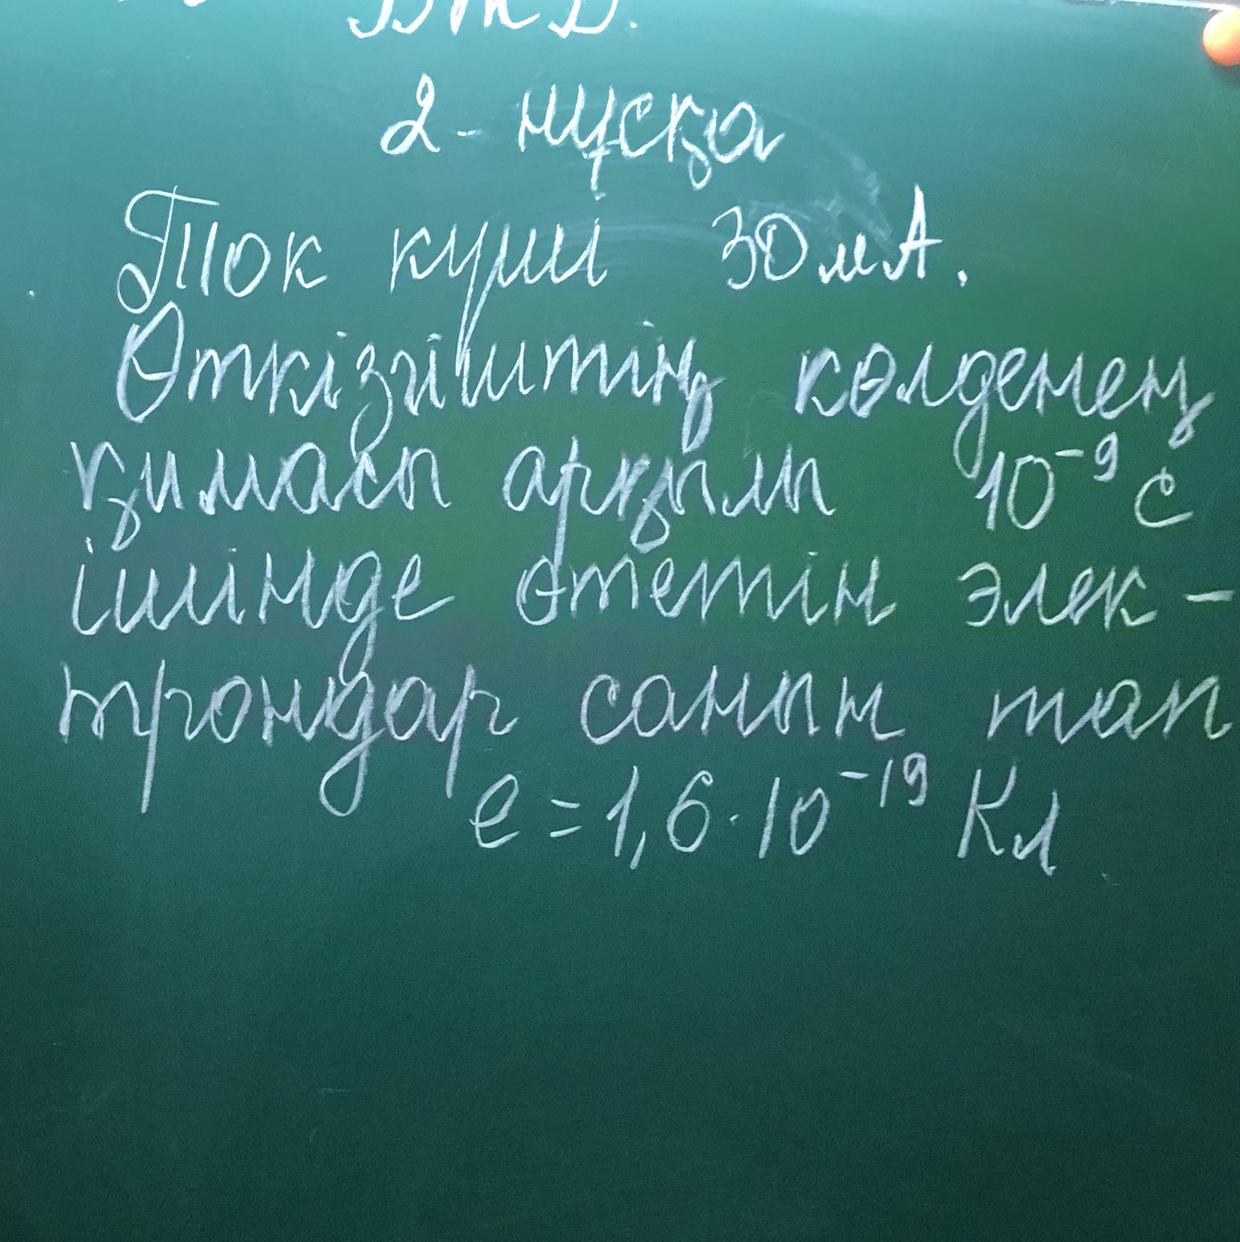 2 - нұсқа
Ток күші 30 мА.
Өткізгіштің көлденең
қимасы арқылы 10⁻⁹ с
ішінде өтетін элек -
трондар санын тап
e = 1,6 · 10⁻¹⁹ Кл